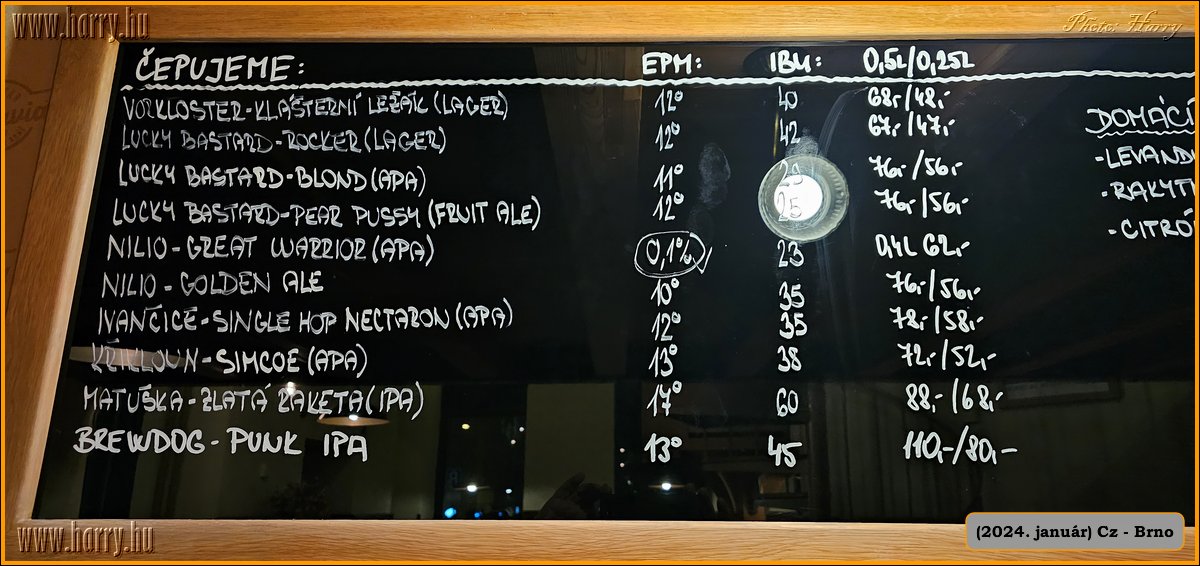 www.harry.hu
Photo: Harry
ČEPUJEME: EPM: IBU: 0,5L/0,25L
VORKLOSTER-KLÁŠTERNÍ LEŽÁK (LAGER) 12° 40 68,-/48,-
LUCKY BASTARD-ROCKER (LAGER) 12° 42 67,-/47,-
LUCKY BASTARD-BLOND (APA) 11° 76,-/56,-
LUCKY BASTARD-PEAR PUSSY (FRUIT ALE) 12° 25 76,-/56,-
NILIO-GREAT WARRIOR (APA) 0,1% 23 0,4L 62,-
NILIO-GOLDEN ALE 10° 35 76,-/56,-
IVANČICE-SINGLE HOP NECTARON (APA) 12° 35 78,-/58,-
KŘIKLOUN-SIMCOE (APA) 13° 38 72,-/52,-
MATUŠKA-ZLATÁ RAKETA (IPA) 17° 60 88,-/68,-
BREWDOG-PUNK IPA 13° 45 110,-/80,-
DOMÁCÍ
-LEVAND
-RAKYT
-CITRÓ
www.harry.hu
(2024. január) Cz - Brno